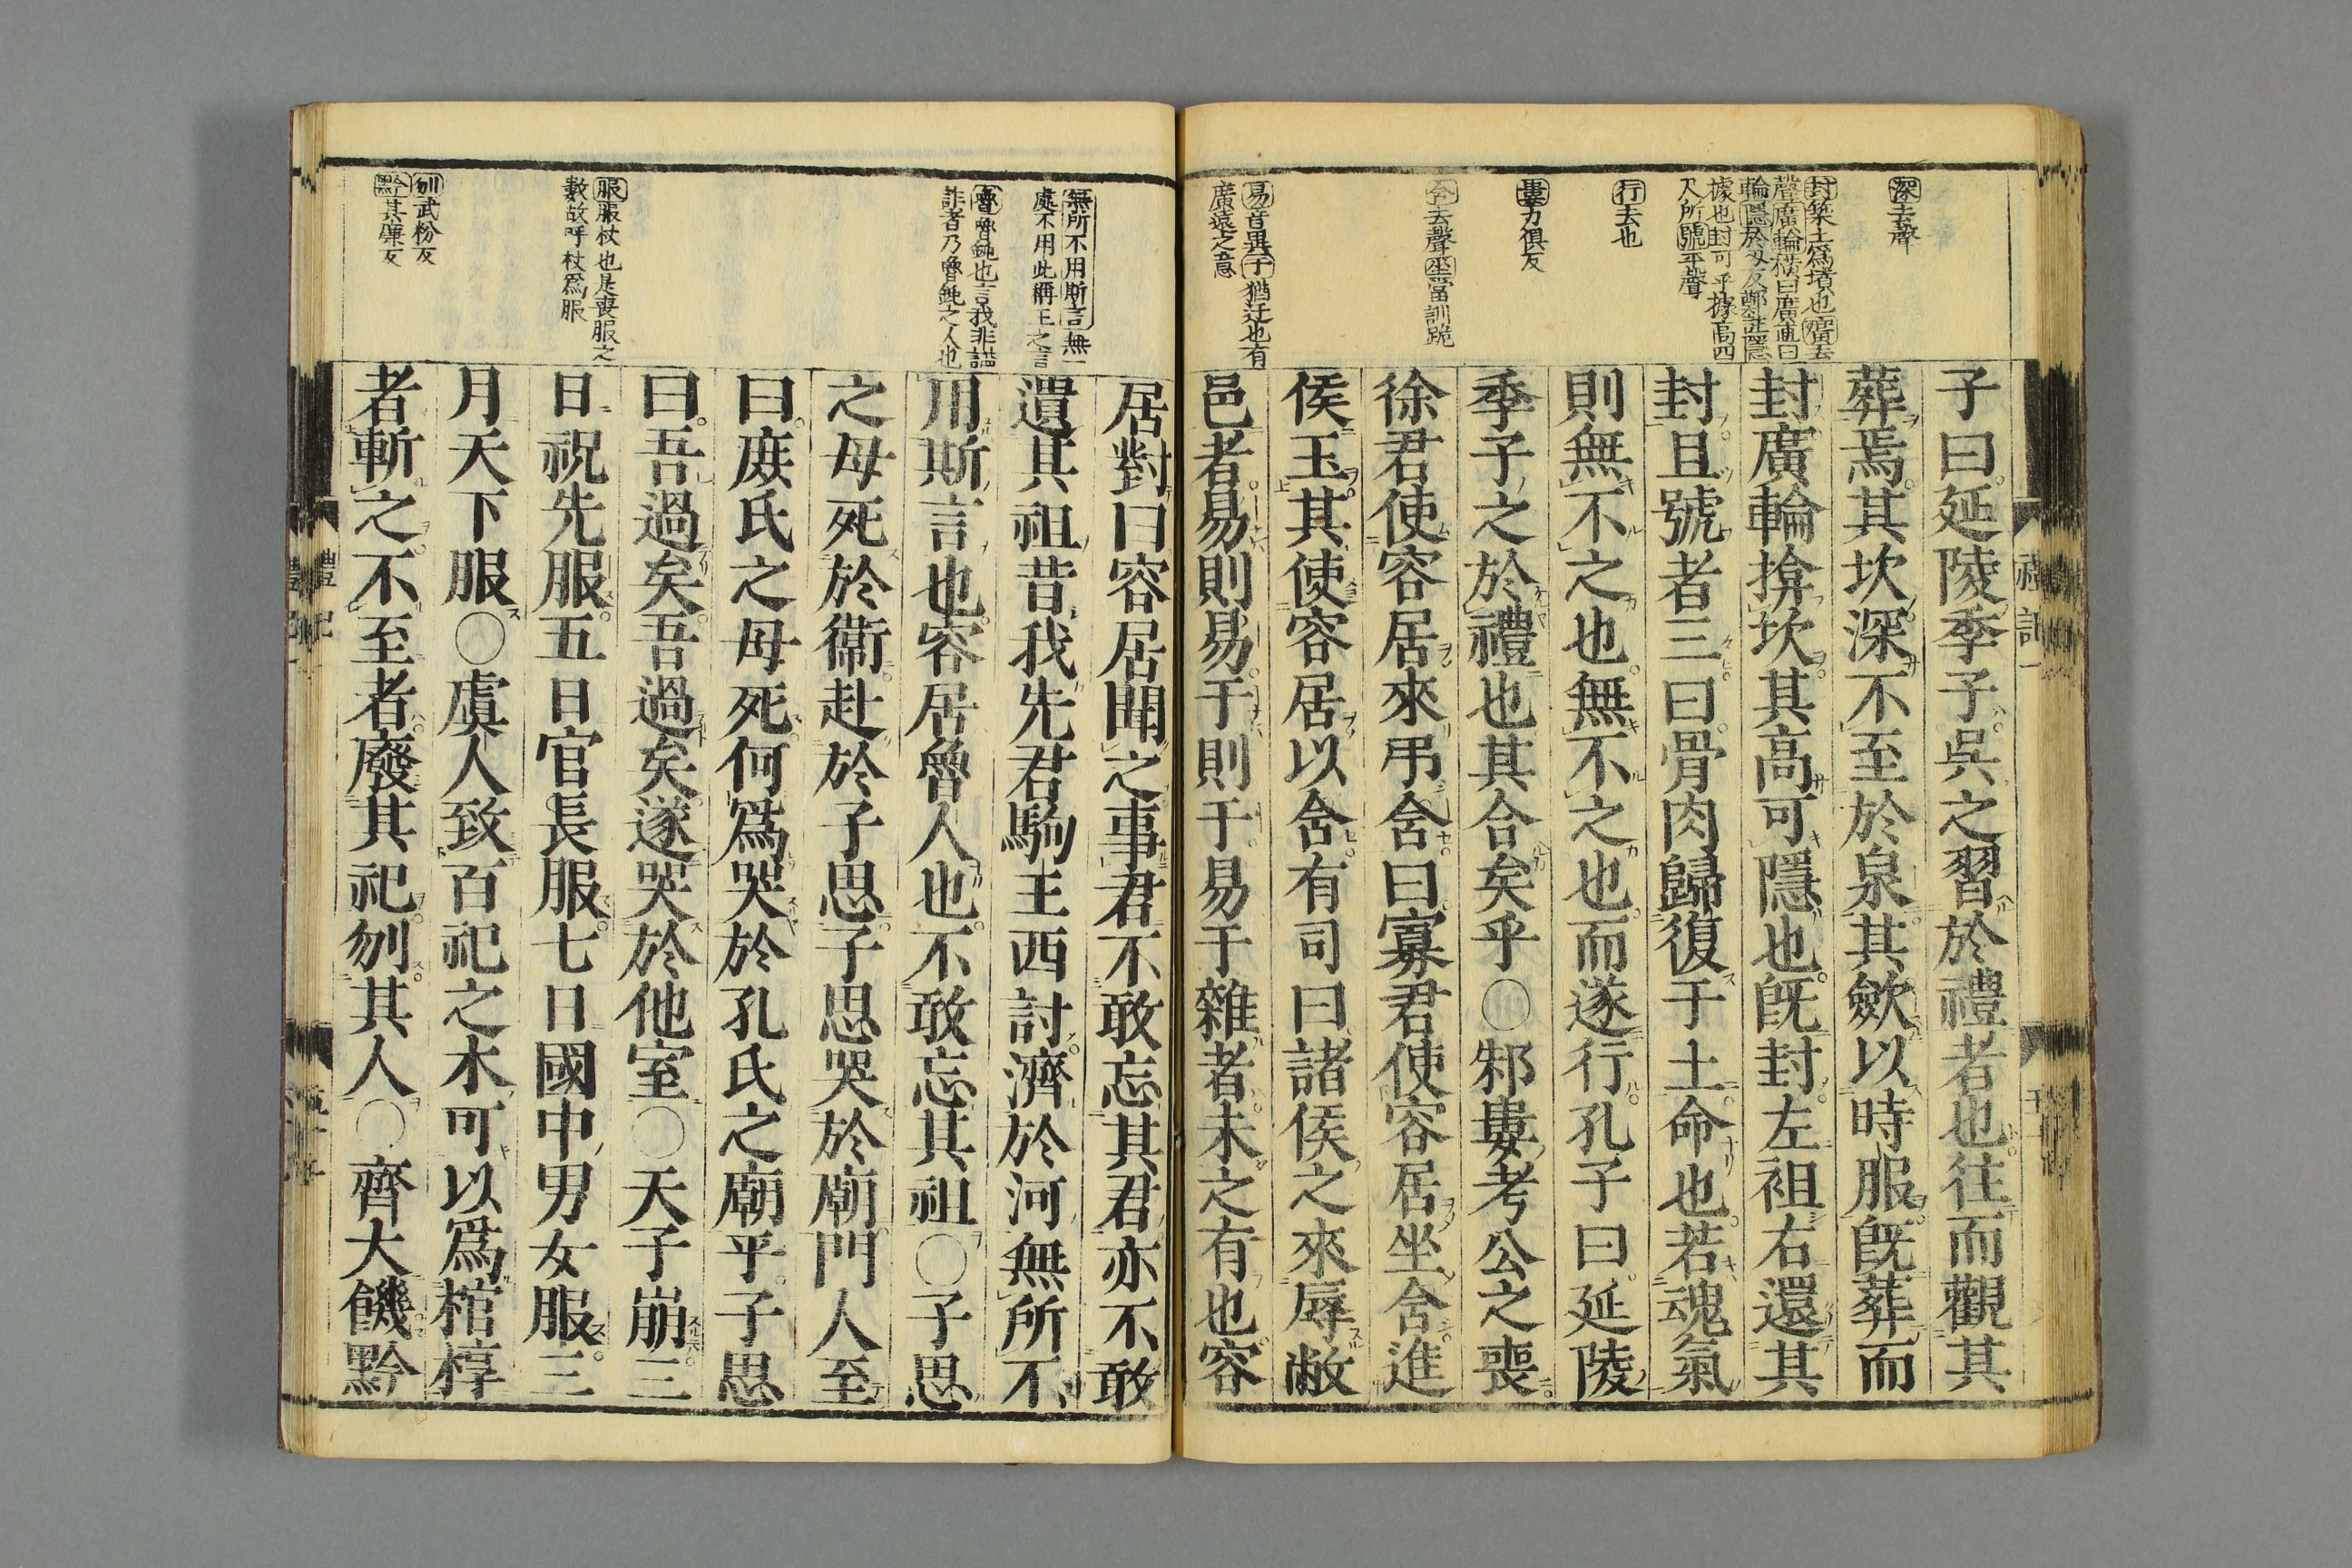 深去聲
封築土爲墳也廣去
聲廣輪橫曰廣直曰
輪隱於刃反鄭註隱
據也封可乎據高四
尺所號平聲
行去也
婁力俱反
含去聲坐當訓跪
易音異于猶迂也有
廣遠之意
子曰延陵季子吳之習於禮者也往而觀其
葬焉其坎深不至於泉其斂以時服旣葬而
封廣輪揜坎其高可隱也旣封左袒右還其
封且號者三曰骨肉歸復于土命也若魂氣
則無不之也無不之也而遂行孔子曰延陵
季子之於禮也其合矣乎○邾婁考公之喪
徐君使容居來弔含曰寡君使容居坐含進
侯玉其使容居以含有司曰諸侯之來辱敝
邑者易則易于則于易于雜者未之有也容
禮記一
無所不用斯言無一
處不用此稱王之言
魯魯鈍也言我非譌
詐者乃魯鈍之人也
服服杖也是喪服之
數故呼杖爲服
刎武粉反
黔其廉反
居對曰容居聞之事君不敢忘其君亦不敢
遺其祖昔我先君駒王西討濟於河無所不
用斯言也容居魯人也不敢忘其祖○子思
之母死於衞赴於子思子思哭於廟門人至
曰庶氏之母死何爲哭於孔氏之廟乎子思
曰吾過矣吾過矣遂哭於他室○天子崩三
日祝先服五日官長服七日國中男女服三
月天下服○虞人致百祀之木可以爲棺椁
者斬之不至者廢其祀刎其人○齊大饑黔
禮記一